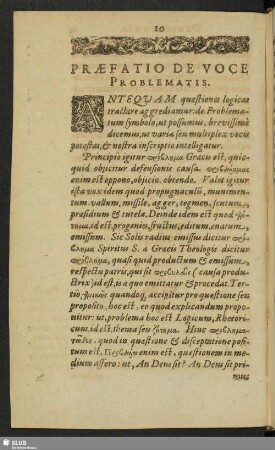 10
PRÆFATIO DE VOCE
PROBLEMATIS.
ANTEQUAM quæstiones logicas
tractare aggrediamur: de Problema-
tum symbolo, ut possumus, brevissimè
dicemus, ut varia seu multiplex vocis
potestas, & nostra inscriptio intelligatur.
Principio igitur πρόβλημα Græcis est, quic-
quid objicitur defensionis causâ.
enim est oppono, objicio, obtendo. Valet igitur
ista vox idem quod propugnaculū, munimen-
tum vallum, missile, agger, tegmen, scutum,
præsidium & tutela. Deinde idem est quod
id est progenies, fructus, editum, enatum,
emissum. Sic Solis radius emissus dicitur πρό-
βλημα Spiritus S. a Græcis Theologis dicitur
πρόβλημα, quasi quid productum & emissum,
respectu patris, qui sit (causa produ-
ctrix) id est, is a quo emittatur & procedat. Ter-
tiò, quandoq, accipitur pro quæstione seu
proposito, hoc est, eo quod explicandum propo-
nitur: ut, problema hoc est Logicum, Rhetori-
cum, id est, thema seu ζήτημα. Hinc
quod in quæstione & disceptatione posi-
tum est. enim est, quæstionem in me-
dium affero: ut, An Deus sit? An Deus sit pri-
mus
SLUB